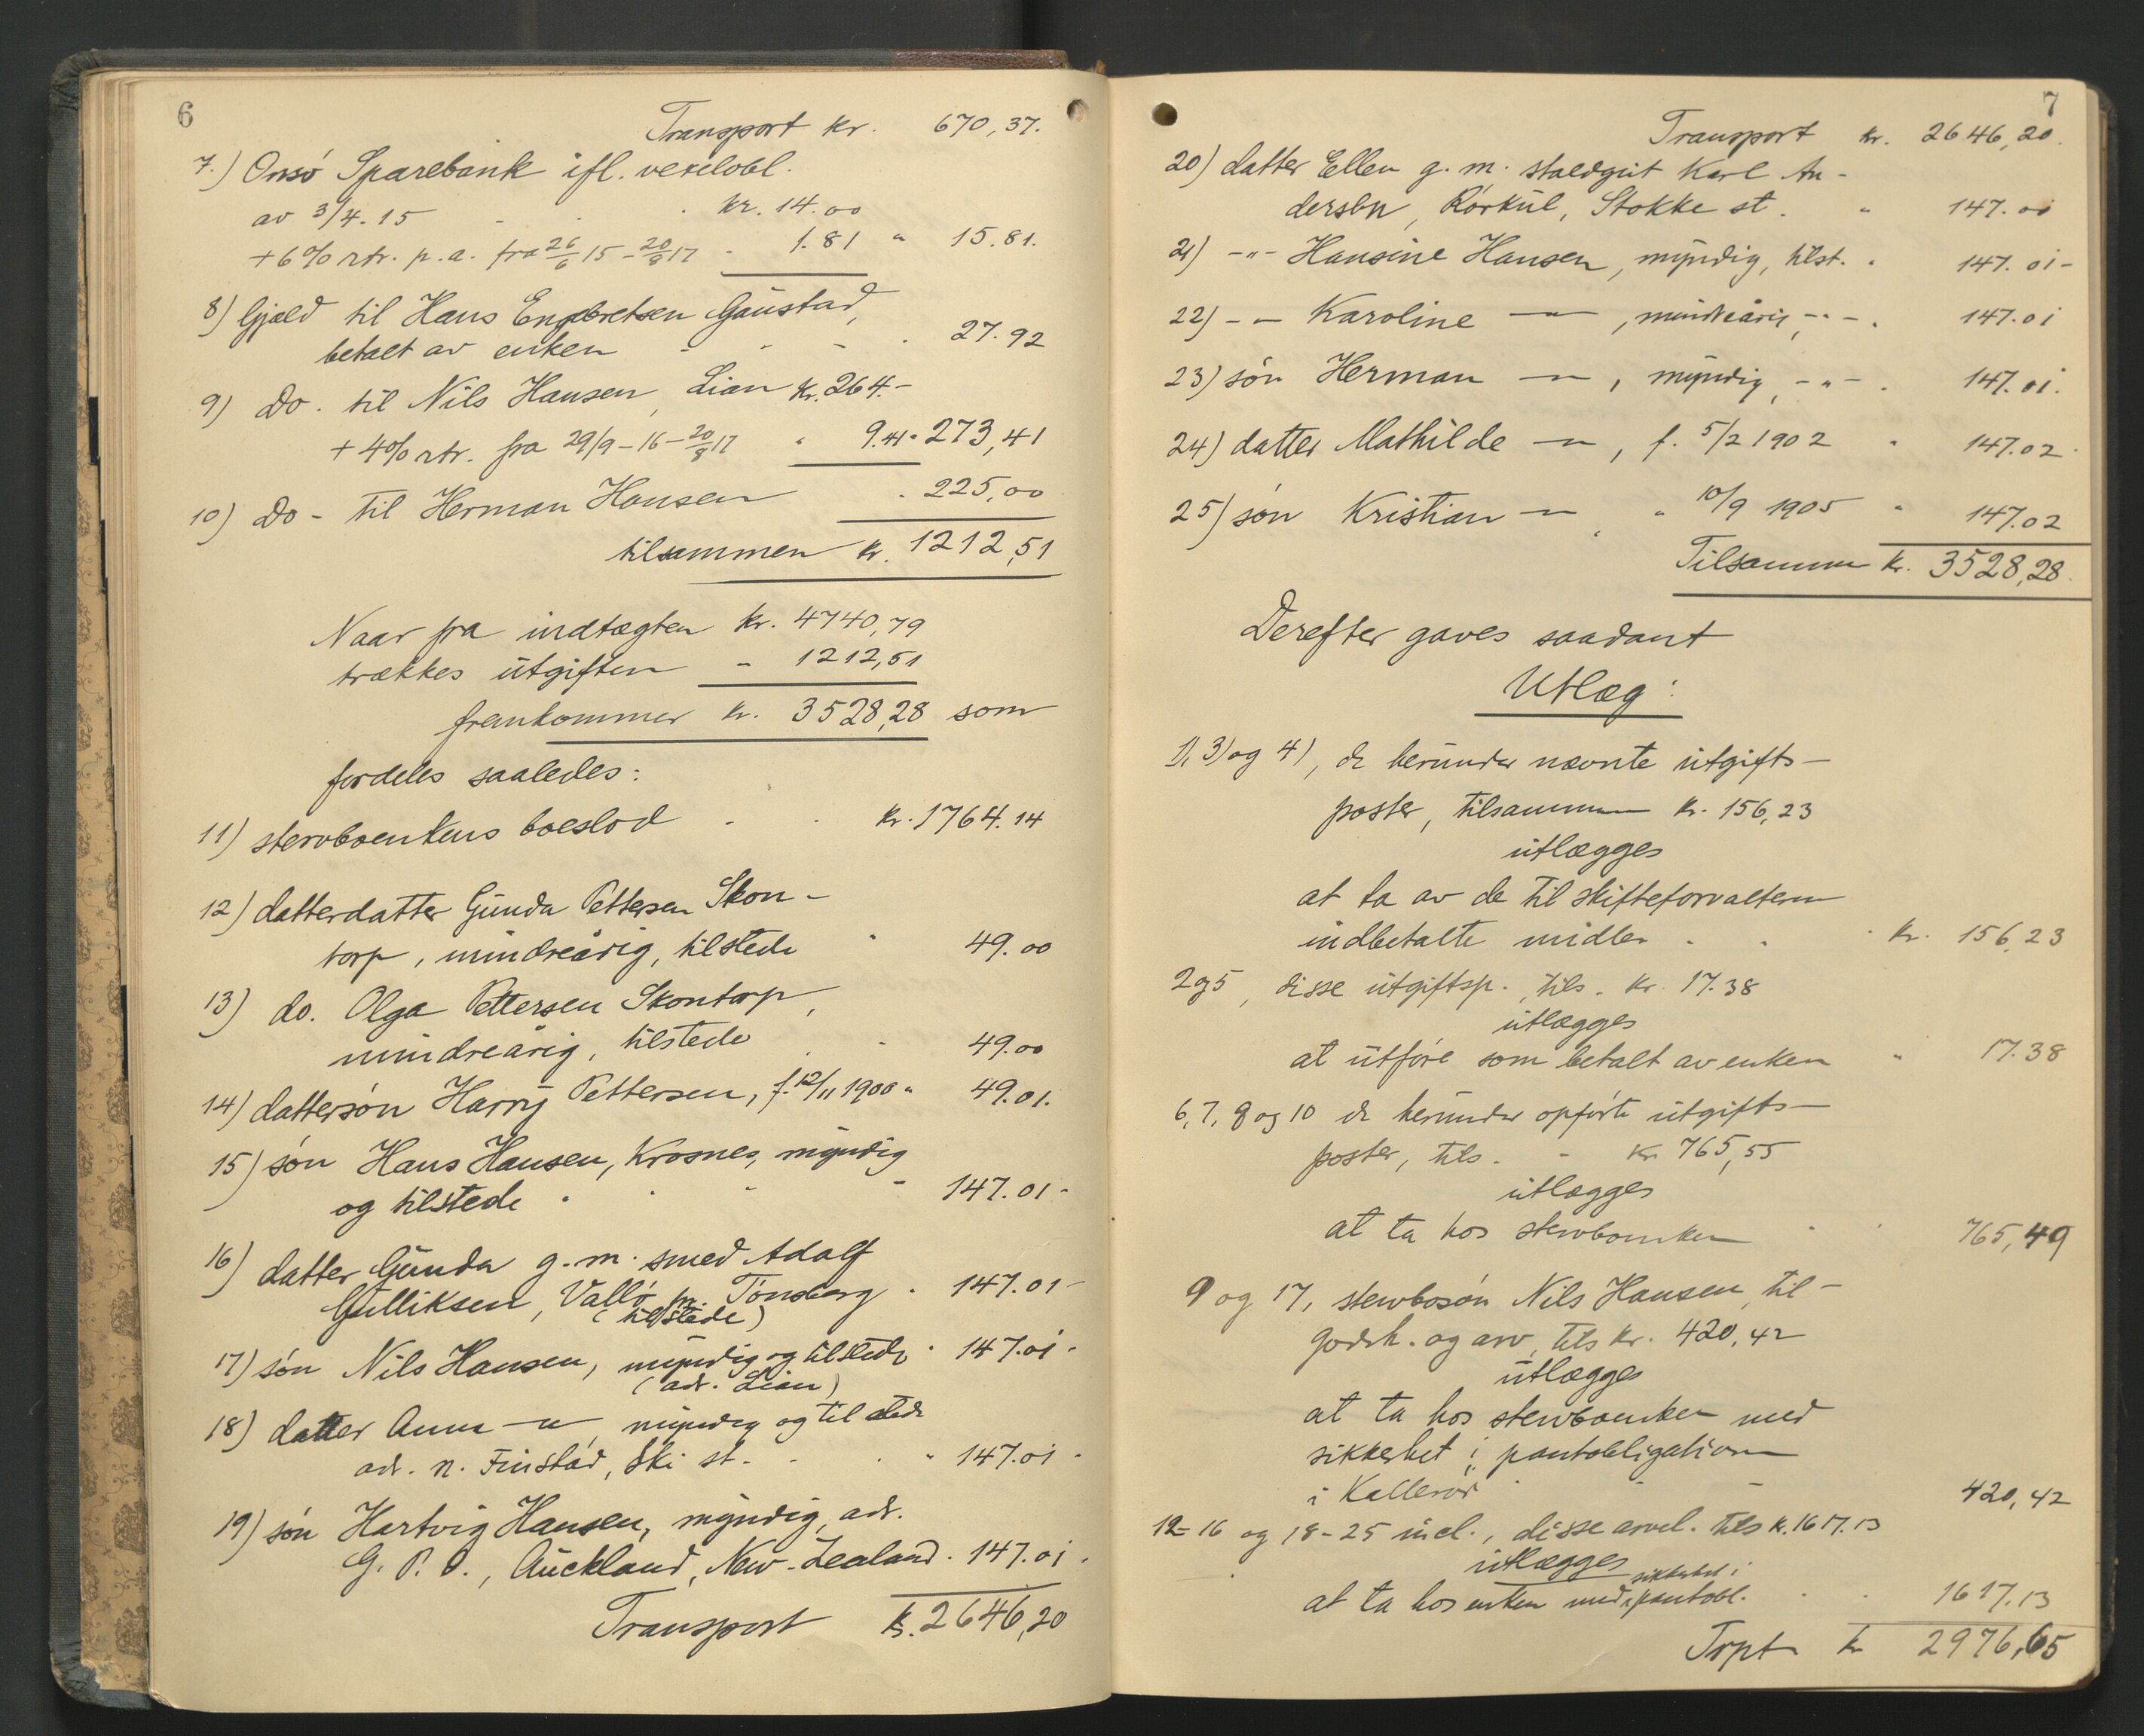 6
Transport kr. 670,37.
7.) Onsö Sparebank ifl. vexelobl.
av 3/4. 15 - - kr. 14.00
+ 6% rtr. p.a. fra 26/6 15 - 20/8 17 - 1.81 " 15.81.
8) Gjæld til Hans Engebretsen Gaustad,
betalt av enken - - - . 27.92
9) Do. til Nils Hansen, Lian kr. 264.-
+ 4% rtr. fra 29/9-16-20/8 17 " 9.41 " 273,41
10) Do - til Herman Hansen . 225,00
tilsammen kr. 1212,51
Naar fra indtægten kr. 4740,79
trækkes utgiften - 1212,51
fremkommer kr. 3528,28 som
fordeles saaledes:
11) stervboenkens boeslod - . kr. 1764.14
12) datterdatter Gunda Pettersen Skon-
torp, mindreårig, tilstede " 49.00
13) do. Olga Pettersen Skontorp,
mindreårig, tilstede . " 49.00
14) dattersön Harry Pettersen, f. 12/11 1900 " 49.01.
15) sön Hans Hansen, Krosnes, myndig
og tilstede . . - - 147.01-
16) datter Gunda g. m. smed Adolf
Gulliksen, Vallö pr. Tönsberg . 147.01-
(tilstede)
17) sön Nils Hansen, myndig og tilstede . 147.01-
(adr. Lian)
18) datter Anna -"-, myndig og tilstede
adr. n. Finstad, Ski st. - . " 147.01-
19) sön Hartvig Hansen, myndig, adr.
G. P. O., Auckland, New-Zealand . 147.01.
Transport kr. 2646,20
7
Transport kr. 2646,20.
20) datter Ellen g. m. staldgut Karl An-
dersen, Rörkul, Stokke st. " 147.01
21) -"- Hansine Hansen, myndig, tilst. . 147.01-
22) -"- Karoline -"-, mindreårig, -"- . 147.01
23) sön Herman -"-, myndig, -"- . 147.01.
24) datter Mathilde -"-, f. 5/2 1902 " 147.02.
25) sön Kristian -"- " 10/9 1905 " 147.02
Tilsammen kr. 3528,28.
Derefter gaves saadant
Utlæg:
1), 3) og 4), de herunder nævnte utgifts-
poster, tilsammen kr. 156,23
utlægges
at ta av de til skifteforvalteren
indbetalte midler . . . kr. 156,23
2 og 5, disse utgiftsp., tils. kr. 17.38
utlægges
at utföre som betalt av enken " 17.38
6, 7, 8 og 10 de herunder opförte utgifts-
poster, tils. - kr. 765,55
utlægges
at ta hos stervboenken . . 765,49
9 og 17, stervbosön Nils Hansen, til-
godeh. og arv, tils kr. 420,42
utlægges
at ta hos stervboenken med
sikkerhet i pantobligationen
i Kalleröd - - 420,42
12-16 og 18-25 incl., disse arvel. tils kr. 1617.13
utlægges
sikkerhet i
at ta hos enken med pantobl. . . 1617.13
Trpt kr 2976,65